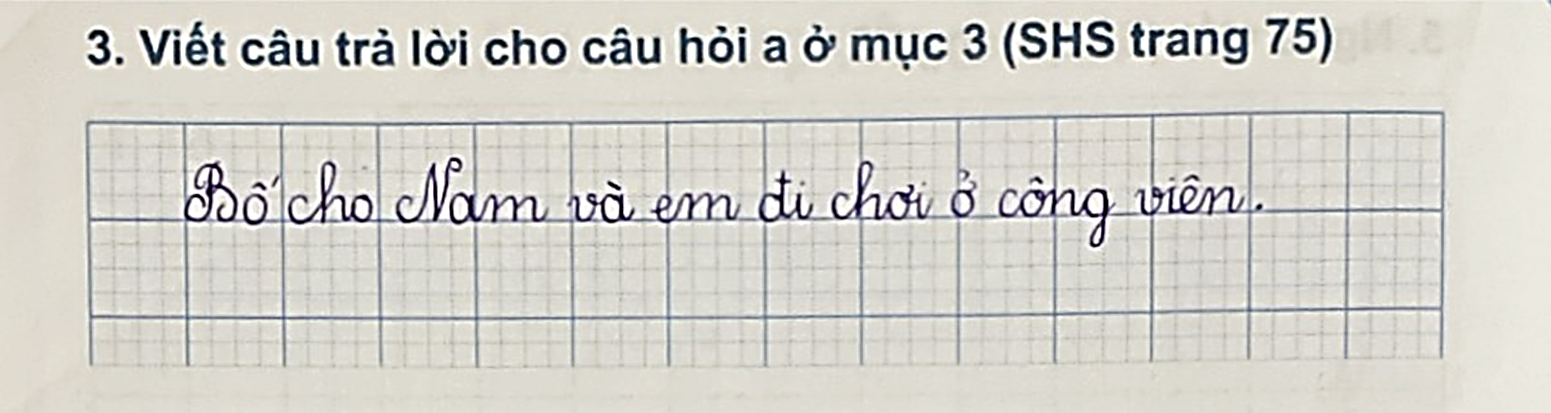 3. Viết câu trả lời cho câu hỏi a ở mục 3 (SHS trang 75)
Bố cho Nam và em đi chơi ở công viên.